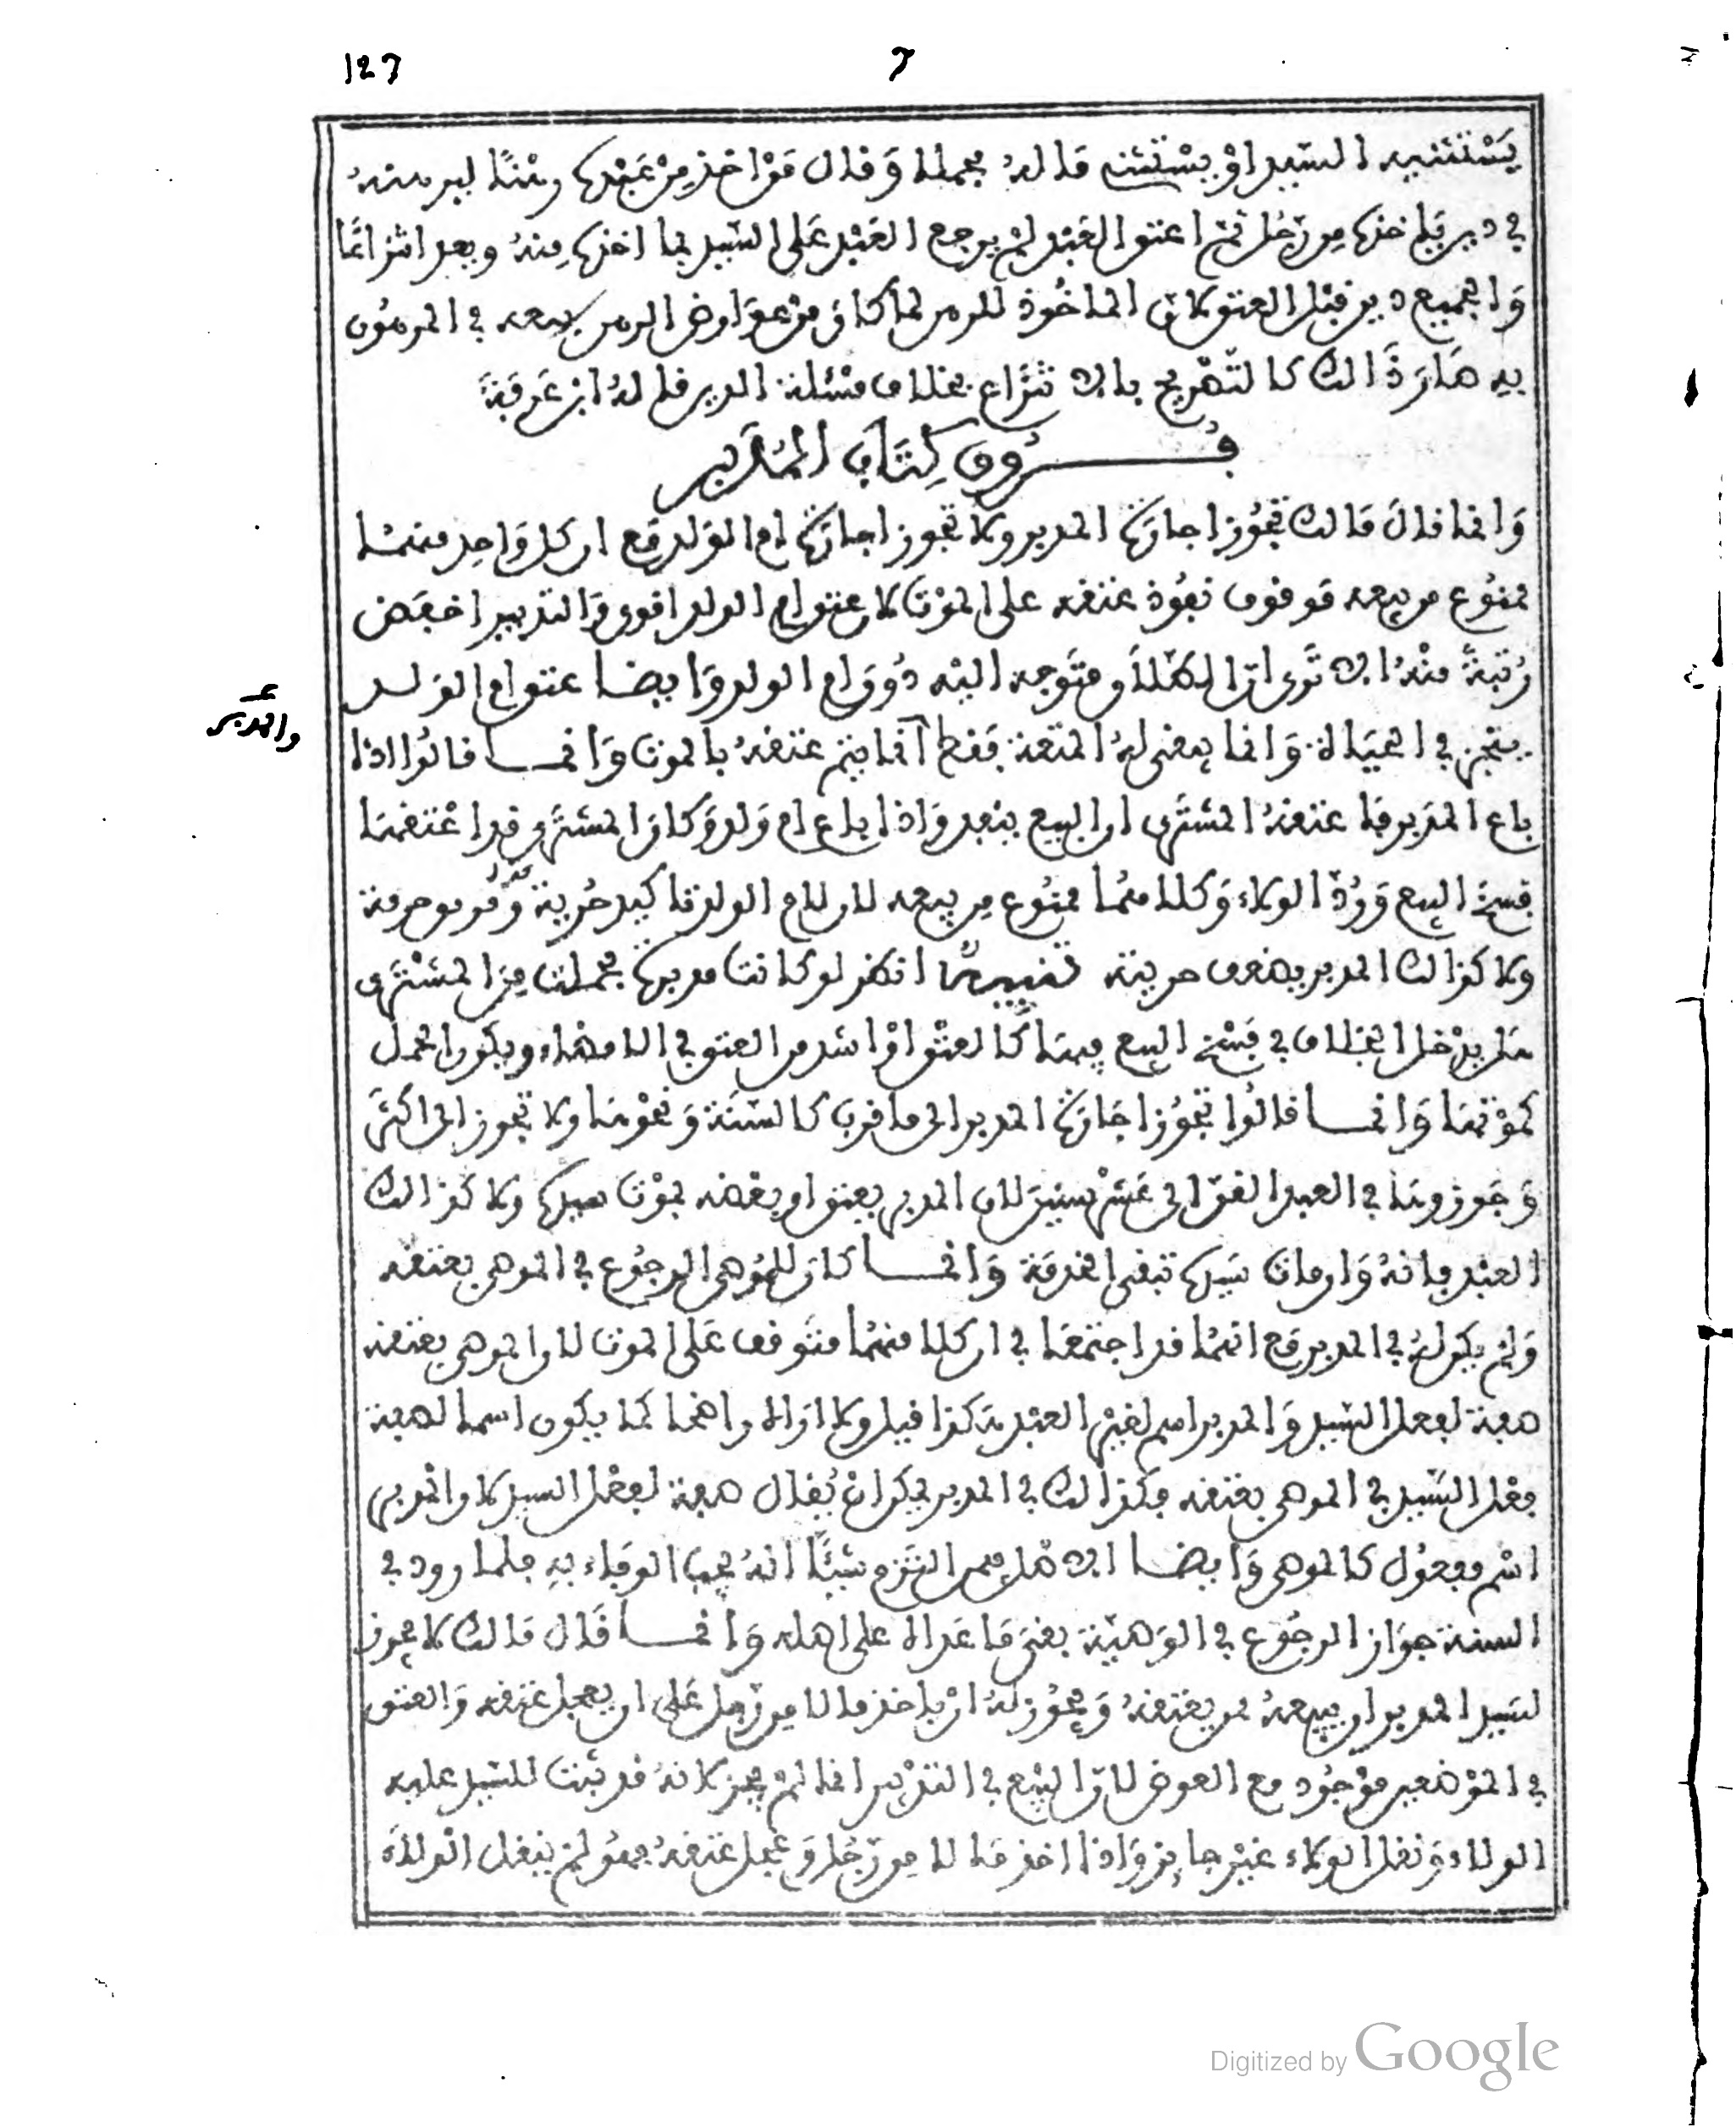 127 7
يَسْتثنيه السّيد اوْ يسْتثنه ماله مجملا وقال مَن اخذ مِنْ عَبْده رهنا ليرهنه
في دين فأخذه من رَجُل ثمّ اعتق العَبْد لمْ يرجع العَبْد عَلى السّيد بما اخذه مِنهُ وبعد انتزاعًا
وَالجميع دين قبْل العتق لان الماخُوذ للرهن لما كان مِن عوَارض الرهن بيعه في المرهُون
بيه صَار ذَالك كالتّصْريح بالانتزاع بخلاف مسْئلة الدين قالهُ ابْن عَرفَة
فُروق كِتَاب المُدَبّر
وَانما قالَ مَالك تجُوز اجارَة المدبر ولا تجوز اجارَة ام الوَلد مَع ان كل وَاحد منهمَا
ممنوع من بيعه موقوف نفُوذ عتقه على الموْت لان عتق ام الولد اقوى وَالتدبير اخفض
رُتبةً منْهُ الا تَرى ان الخللَ متوجه اليْه دُون ام الولد وَايضا عتق ام الوَلد
والمدبر
يتنجز في الحيَاة وَانما بقى له المتعة فقط انما يتم عتقهُ بالموت وَانما قالُوا اذا
باع المدَبر فاعتقهُ المشتَرى ان البيع ينفد وَاذا باع ام وَلد وَكان المشتَرى قد اعْتقهَا
فسخ البيع وَرُدّ الولاء وَكلا مِنهُما ممنُوع مِن بيعه لان لام الولد تاكيد حُرية وَقُوة حرمة
ولا كذالك المدبر بضعف حريته تنبيه انظر لو كانت مدبرة فحملت مِن المشتَرى
هَل يدْخل الخلاف في فسْخ البيع فيهَا كالعتْق اوْ اشد من العتق في الامضاء ويكون الحمل
كموْتهَا وَانما قالُوا تجُوز اجَارَة المدبر الى ما قرب كالسّنَة وَنحوهَا ولا تجوز الى اكثَر
وَجوزوهَا في العبد القنّ الى عَشْر سنينَ لان المدبر يعتق او بعْضه بموْت سيده ولا كذالك
العبْد فانهُ وَان مات سَيده تبقى الخدمَة وَانما كان للمُوصى الرجُوع في الموصى بعتقه
وَلم يكن لهُ في المدبر مَع انهُما قد اجتمعَا في ان كلا منهُما متوقف عَلى الموت لان الموصى بعتقه
صفة لفعل السّيد وَالمدبر اسم لغيْر العبْد هَكذا قيل ولا اراه راهنا كما يكون اسما لصفة
فعْل السّيد في الموصى بعتقه فكذالك في المدبر يمكن انْ يُقال صفة لفعْل السيد لان المدبر
اسْم مفعُول كالموصى وَايضا الاصْل فيمن التزم شيئًا انهُ يجب الوفاء بهِ فلما ورد في
السنة جوَاز الرجُوع في الوَصيّة بقى مَا عَداه على اصله وَانما قَال مَالك لا يجوز
لسَيد المدبر ان يبيعهُ ممن يعتقهُ وَيجُوز لهُ انْ ياخذ مالا مِن رَجل عَلى ان يعجل عتقه وَالعتق
في الموْضعين موْجُود مع العوض لان البَيْع في التدْبير انما لمْ يجز لانهُ قد ثَبت للسّيد عليه
الولاء وَنقل الولاء غيْر جايز وَاذا اخذ مَالا من رَجُل وَعَجل عتقهُ فهُو لمْ ينقل الْولاء
Digitized by Google